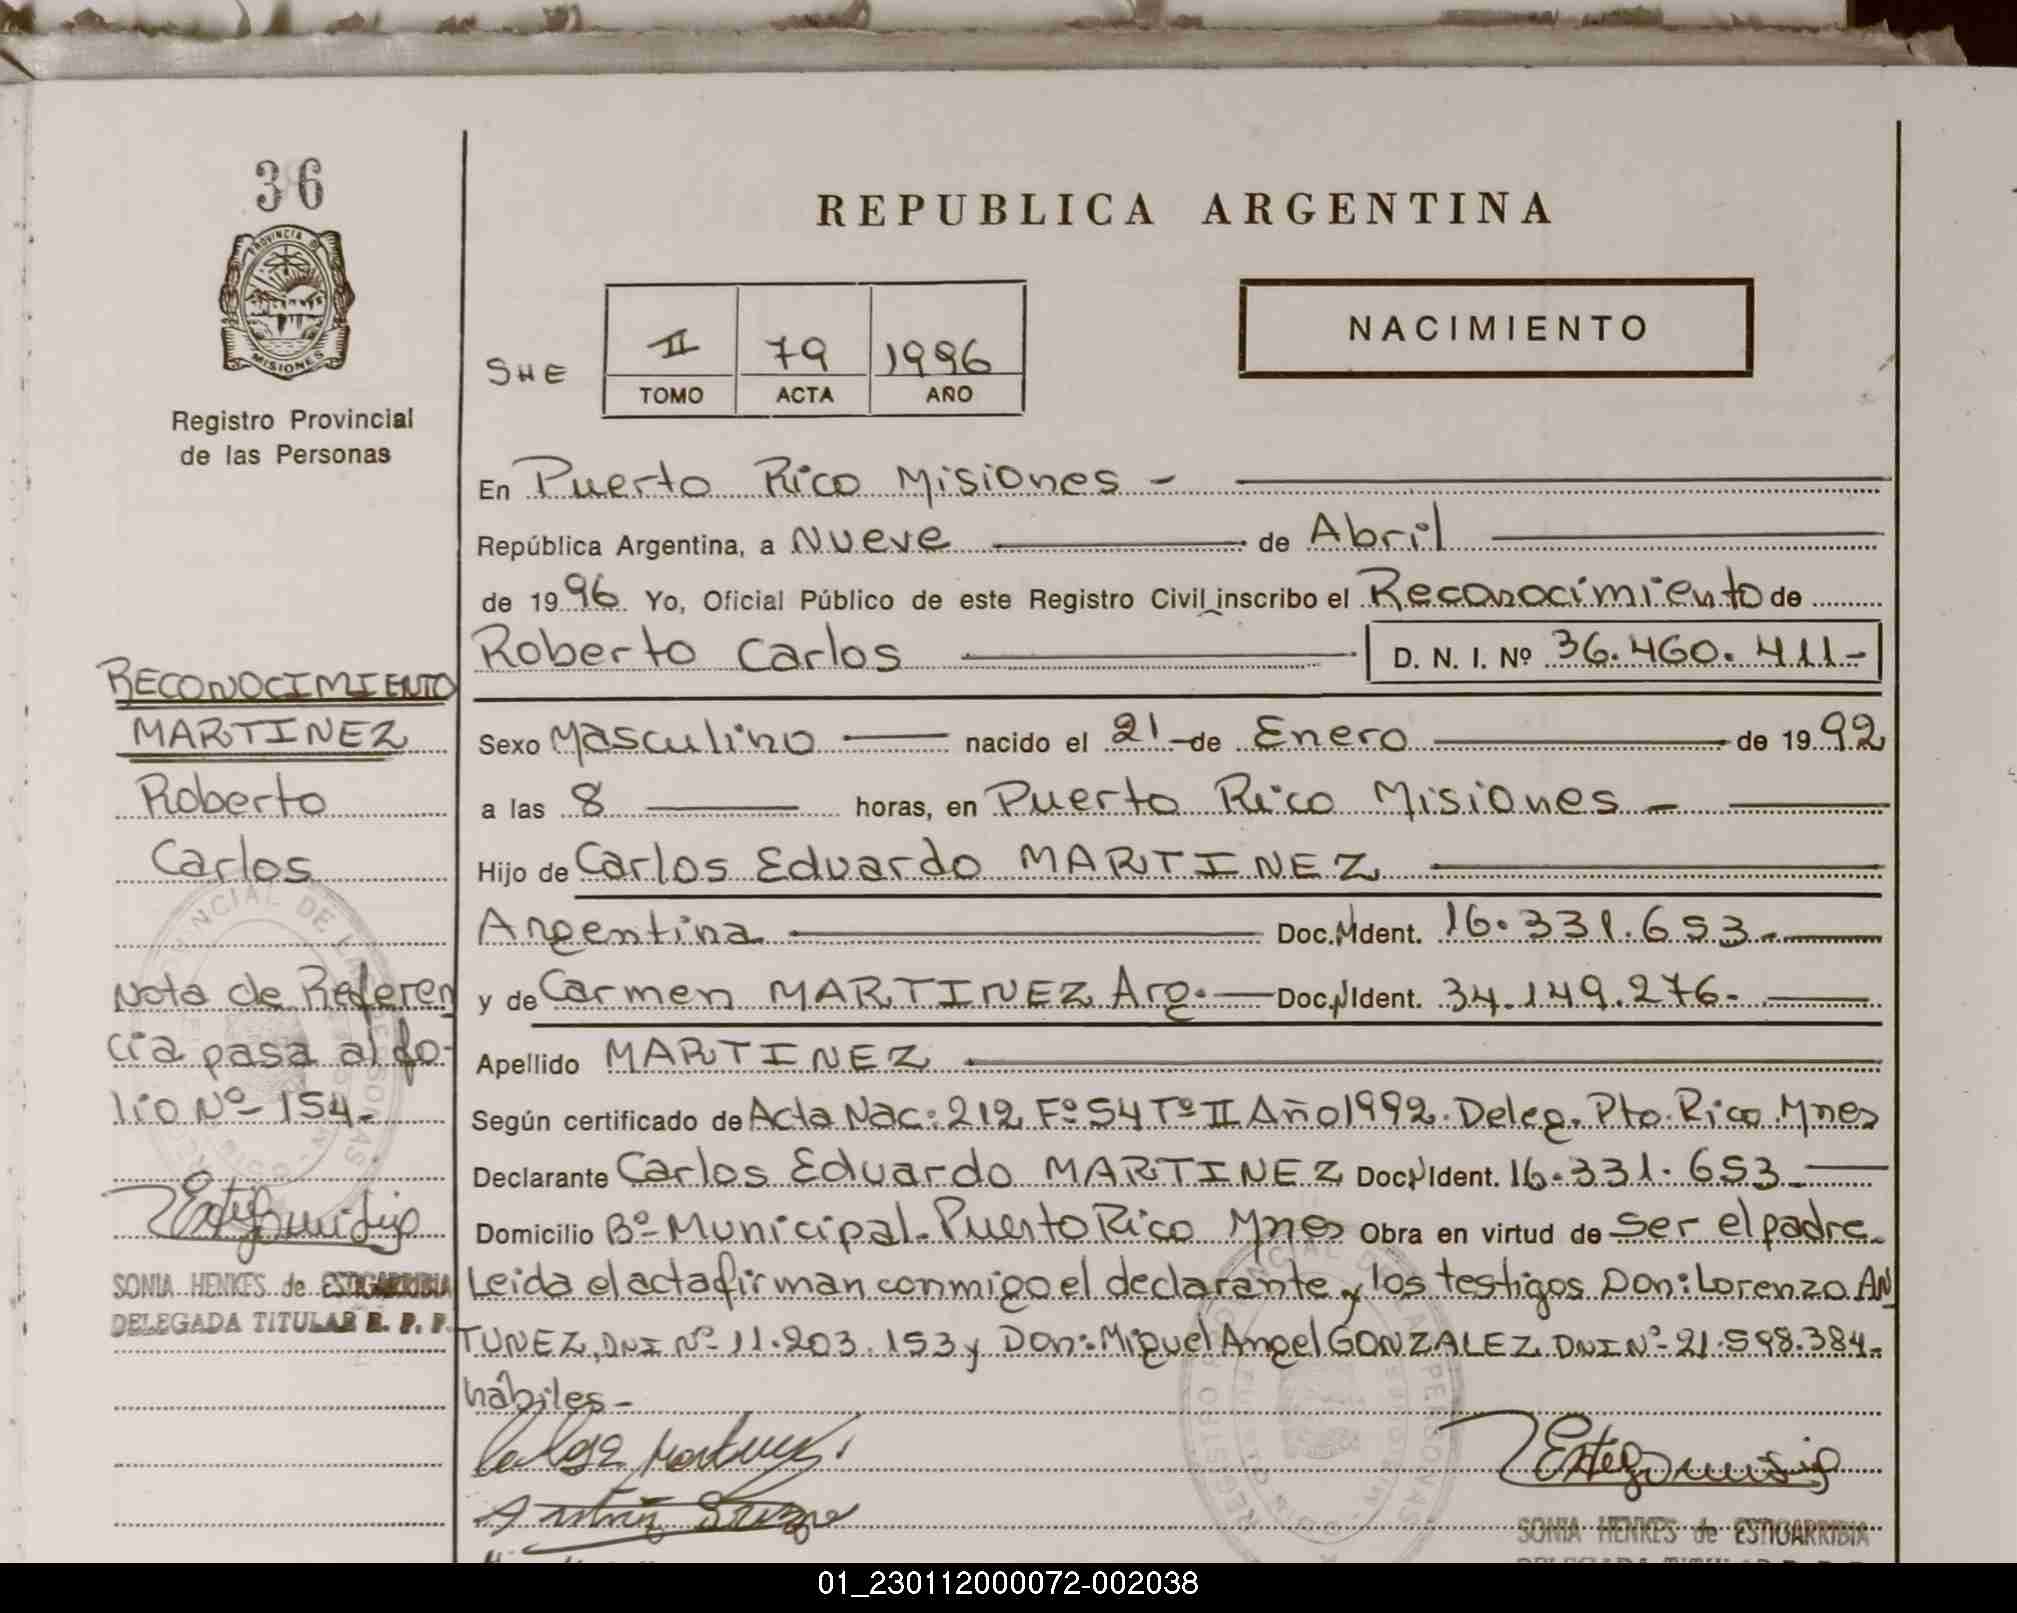 36
PROVINCIA D
MISIONES
Registro Provincial
de las Personas
REPUBLICA ARGENTINA
NACIMIENTO
SHE
II 79 1996
TOMO ACTA AÑO
En Puerto Rico Misiones -
República Argentina, a Nueve de Abril
de 1996 Yo, Oficial Público de este Registro Civil inscribo el Reconocimiento de
Roberto Carlos D. N. I. Nº 36.460.411-
Sexo Masculino nacido el 21 de Enero de 1992
a las 8 horas, en Puerto Rico Misiones -
Hijo de Carlos Eduardo MARTINEZ
Argentina Doc. Ident. 16.331.653-
y de Carmen MARTINEZ Arg. Doc. Ident. 34.149.276-
Apellido MARTINEZ
Según certificado de Acta Nac: 212 Fº 54 Tº II Año 1992. Deleg. Pto. Rico Mnes
Declarante Carlos Eduardo MARTINEZ Doc. Ident. 16.331.653-
Domicilio Bº Municipal. Puerto Rico Mnes Obra en virtud de ser el padre-
Leida el acta firman conmigo el declarante y los testigos Don: Lorenzo AN
TUNEZ, DNI Nº 11.203.153 y Don: Miguel Angel GONZALEZ DNI Nº 21.598.384-
hábiles-
SONIA HENKES de ESTIGARRIBIA
RECONOCIMIENTO
MARTINEZ
Roberto
Carlos
Nota de Referen
cia pasa al fo-
lio Nº 154-
SONIA HENKES de ESTIGARRIBIA
DELEGADA TITULAR R. P. P.
01_230112000072-002038